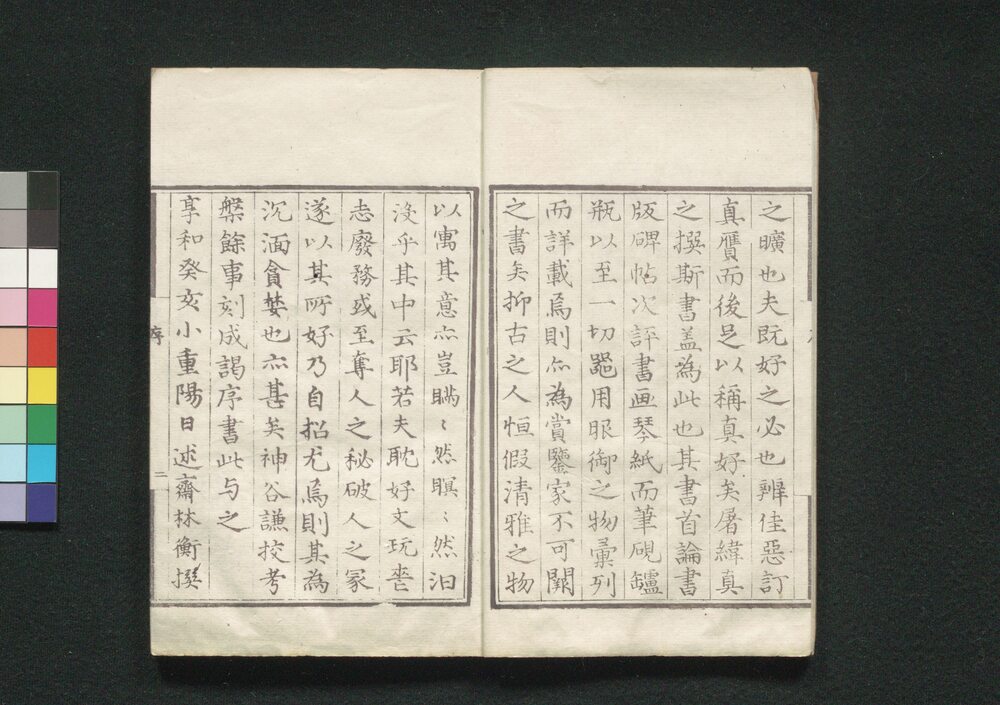 之曠也夫既好之必也辨佳惡訂
真贋而後足以稱真好矣屠緯真
之撰斯書盖為此也其書首論書
版碑帖次評書画琴紙而筆硯罏
瓶以至一切噐用服御之物彙列
而詳載焉則亦為賞鑒家不可闕
之書矣抑古之人恒假清雅之物
以寓其意亦豈瞞〻然瞑〻然汩
沒乎其中云耶若夫耽好文玩喪
志廢務或至奪人之秘破人之冢
遂以其所好乃自招尤焉則其為
沉湎貪婪也亦甚矣神谷謙挍考
槃餘事刻成謁序書此与之
享和癸亥小重陽日述齋林衡撰
序
二